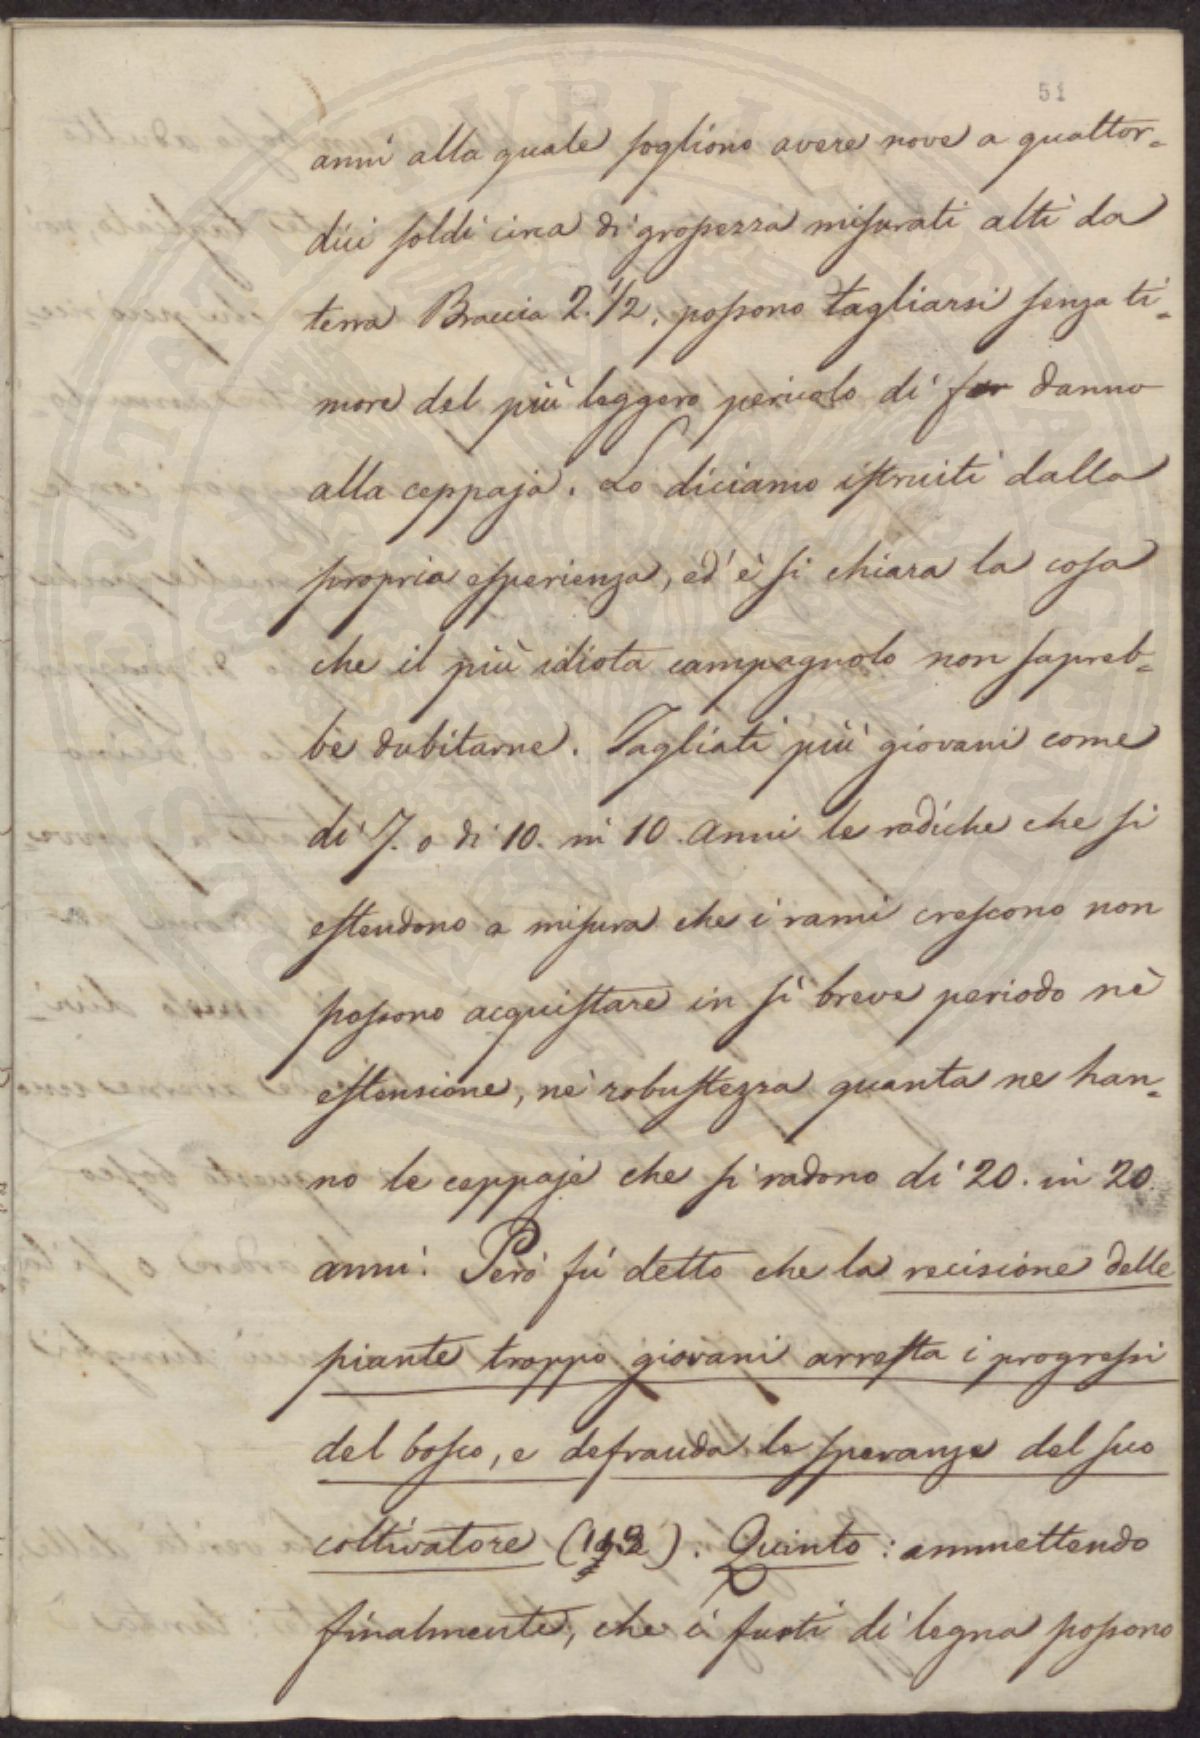 51
anni alla quale sogliono avere nove a quattor-
dici soldi circa di grossezza misurati alti da
terra Braccia 2. 1/2, possono tagliarsi senza ti-
more del più leggero pericolo di far danno
alla ceppaja. Lo diciamo istruiti dalla
propria esperienza, ed è si chiara la cosa
che il più idiota campagnolo non sapreb-
be dubitarne. Tagliati più giovani come
di 7. o di 10. in 10. anni le radiche che si
estendono a misura che i rami crescono non
possono acquistare in sì breve periodo nè
estensione, nè robustezza quanta ne han-
no le ceppaje che si radono di 20. in 20.
anni. Però fù detto che la recisione delle
piante troppo giovani arresta i progressi
del bosco, e defrauda le speranze del suo
coltivatore ( ). Quinto: ammettendo
finalmente, che i furti di legna possono